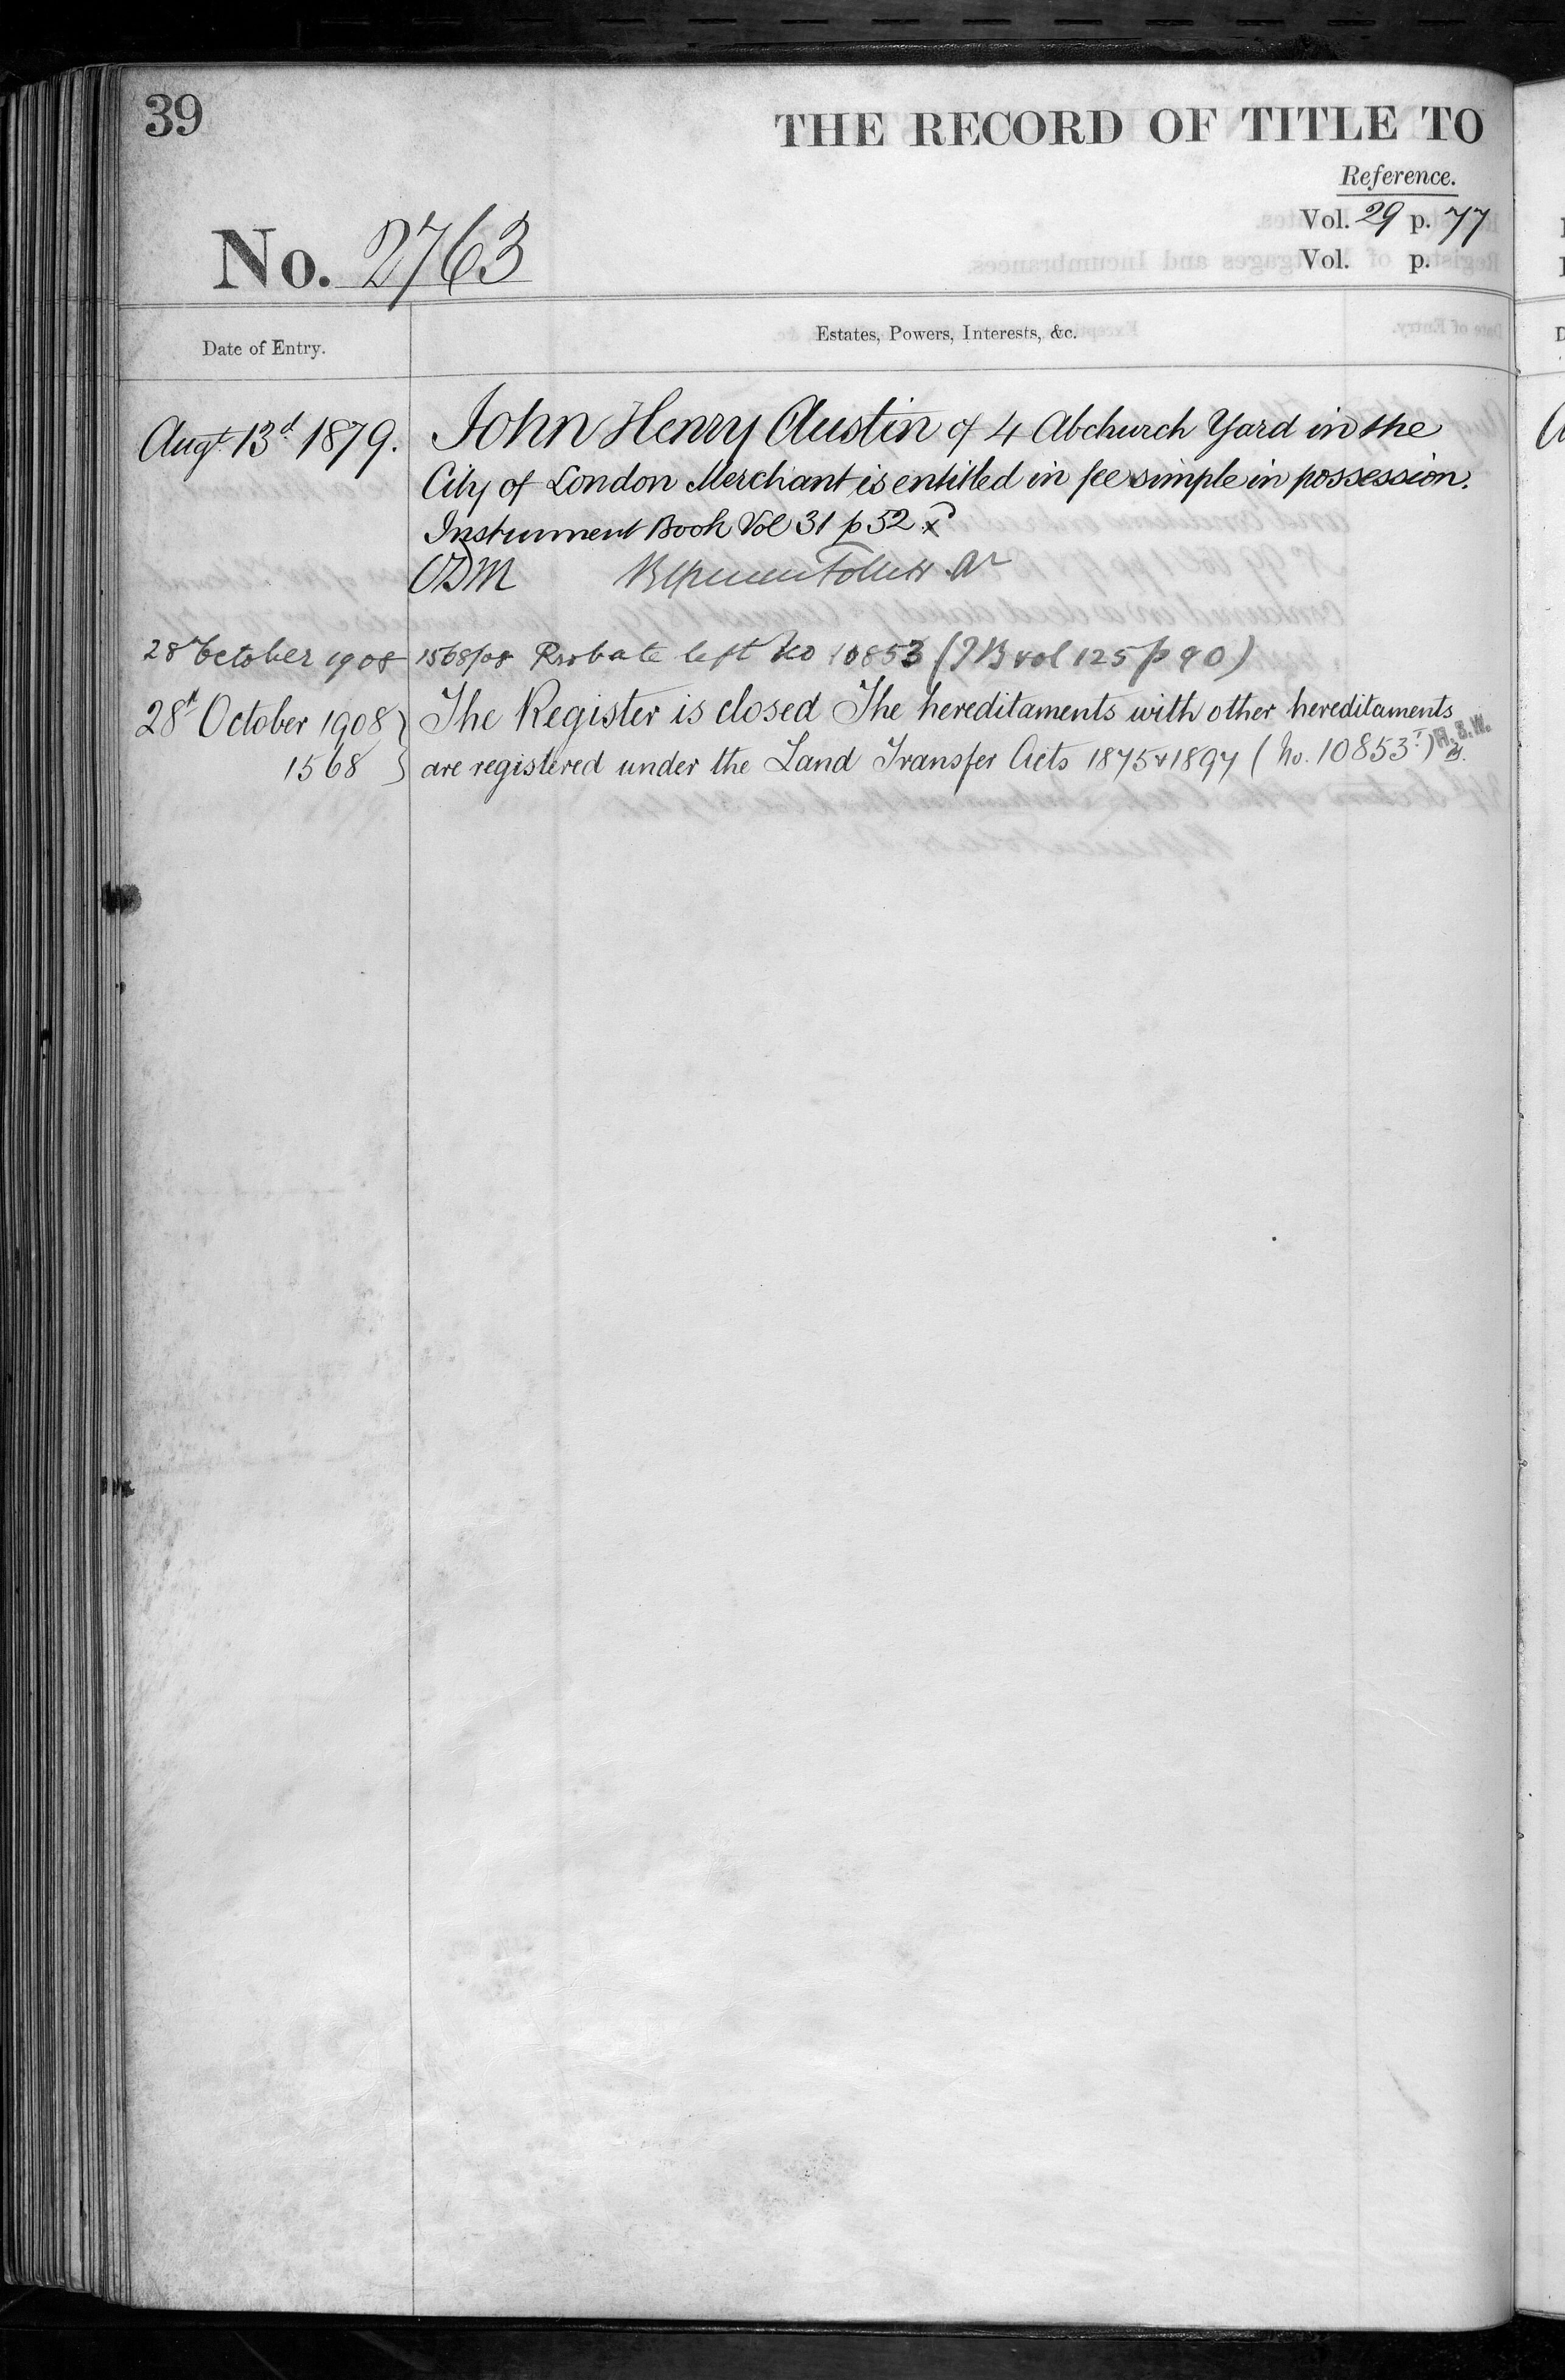 39
THE RECORD OF TITLE TO
Reference.
Vol. 29 p. 77
No. 2763
Vol. p.
Date of Entry.
Estates, Powers, Interests, &c.
Augt. 13d. 1879.
John Henry Austin of 4 Abchurch Yard in the
City of London Merchant is entitled in fee simple in possession.
Instrument Book Vol 31 p 52
28th October 1908
1568/08 Probate left No 10853 (IB vol 125 p 90)
28th October 1908
1568
The Register is closed The hereditaments with other hereditaments
are registered under the Land Transfer Acts 1875 & 1897 (No. 10853)